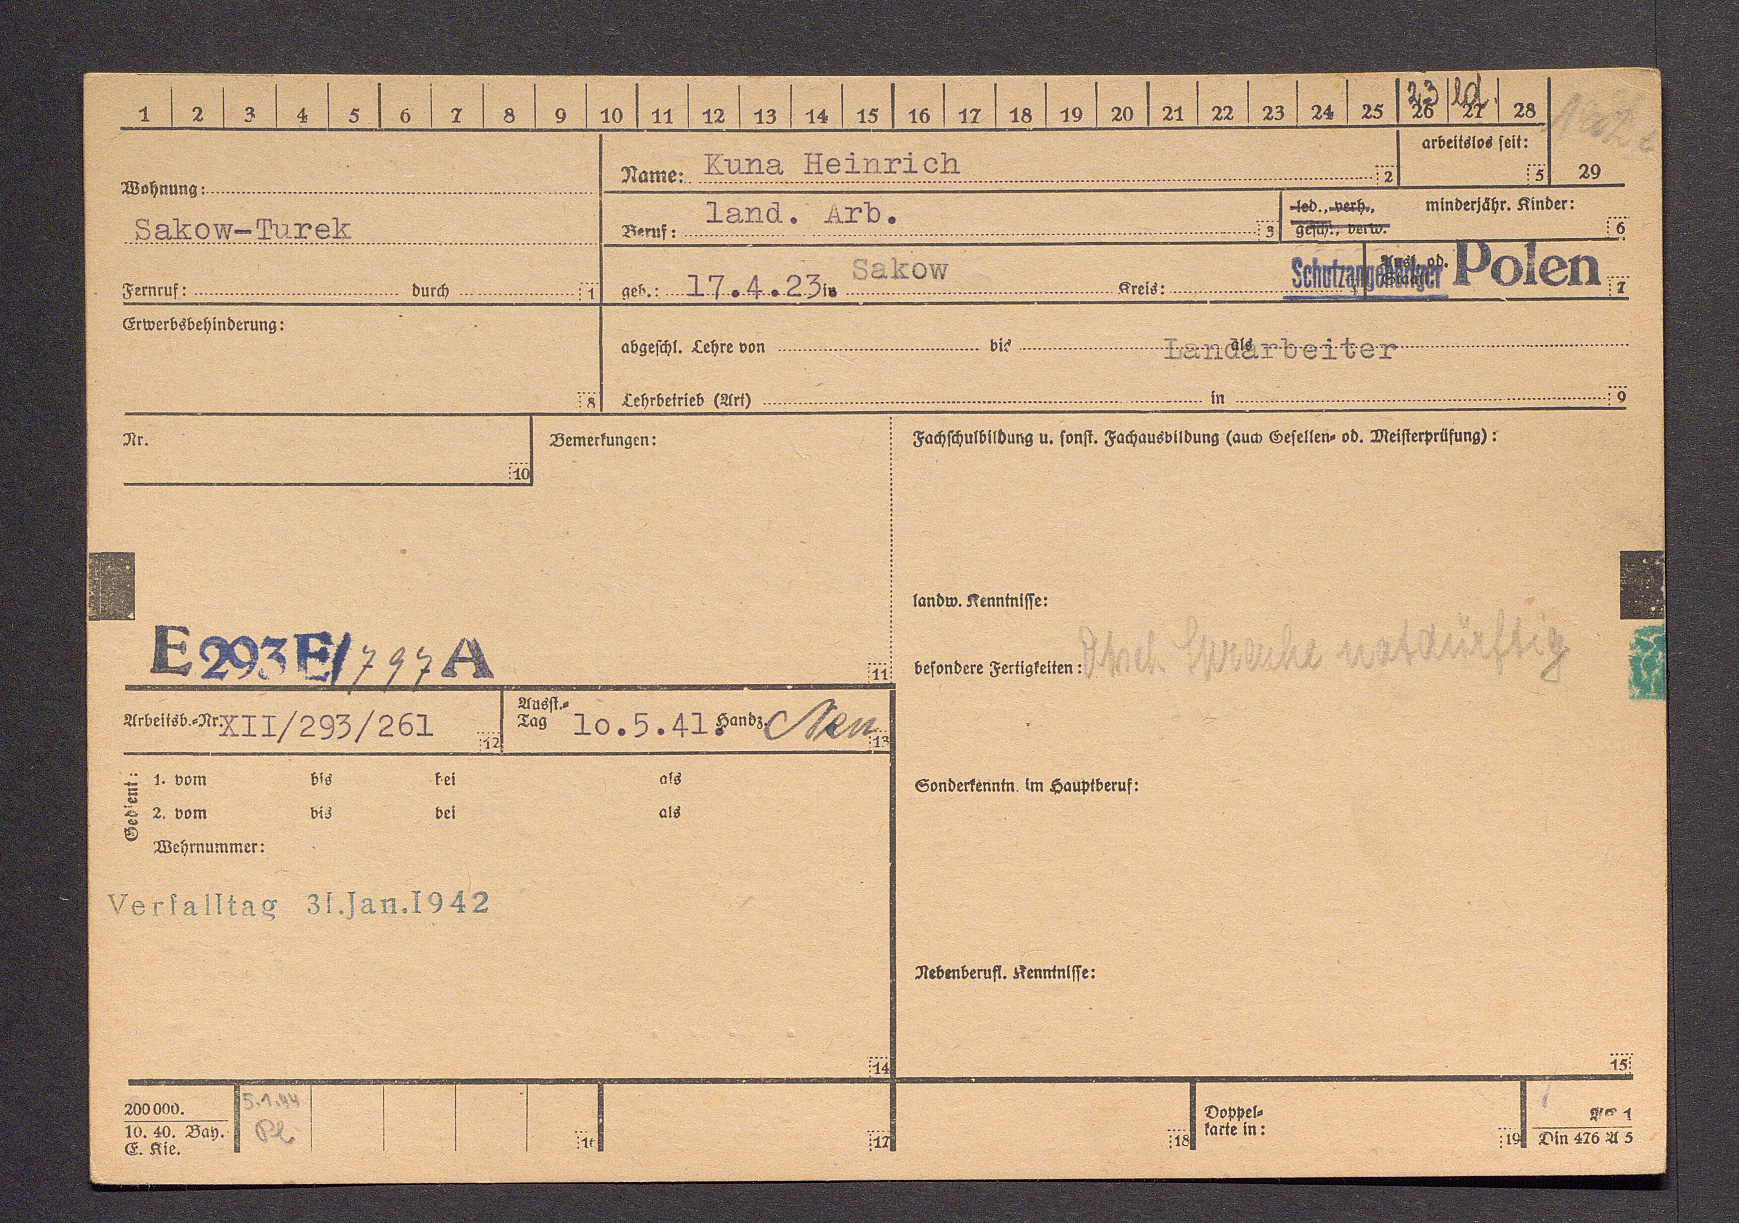 1 2 3 4 5 6 7 8 9 10 11 12 13 14 15 16 17 18 19 20 21 22 23 24 25 26 27 28
23 led.
arbeitslos seit:
Wohnung:
Name: Kuna Heinrich 2
5 29
Sakow-Turek
Beruf: land. Arb. 3
led., verh., gesch., verw.
minderjähr. Kinder: 6
Fernruf: durch 1
geb.: 17.4.23 in Sakow Kreis:
Schutzangehöriger Polen 7
Erwerbsbehinderung: 8
abgeschl. Lehre von bis als Landarbeiter
Lehrbetrieb (Art) in 9
Nr. 10
Bemerkungen:
Fachschulbildung u. sonst. Fachausbildung (auch Gesellen- od. Meisterprüfung):
landw. Kenntnisse:
E 293 E/797 A 11
besondere Fertigkeiten: Dtsch. Sprache notdürftig
Arbeitsb.-Nr. XII/293/261 12
Ausst.-Tag 10.5.41. Handz. 13
Gedient:
1. vom bis bei als
2. vom bis bei als
Wehrnummer:
Sonderkenntn. im Hauptberuf:
Verfalltag 31.Jan.1942
Nebenberufl. Kenntnisse:
14 15
200000.
10. 40. Bay.
E. Kie.
5.1.44
Pl
16 17 18
Doppel-
karte in: 19
Din 476 A 5